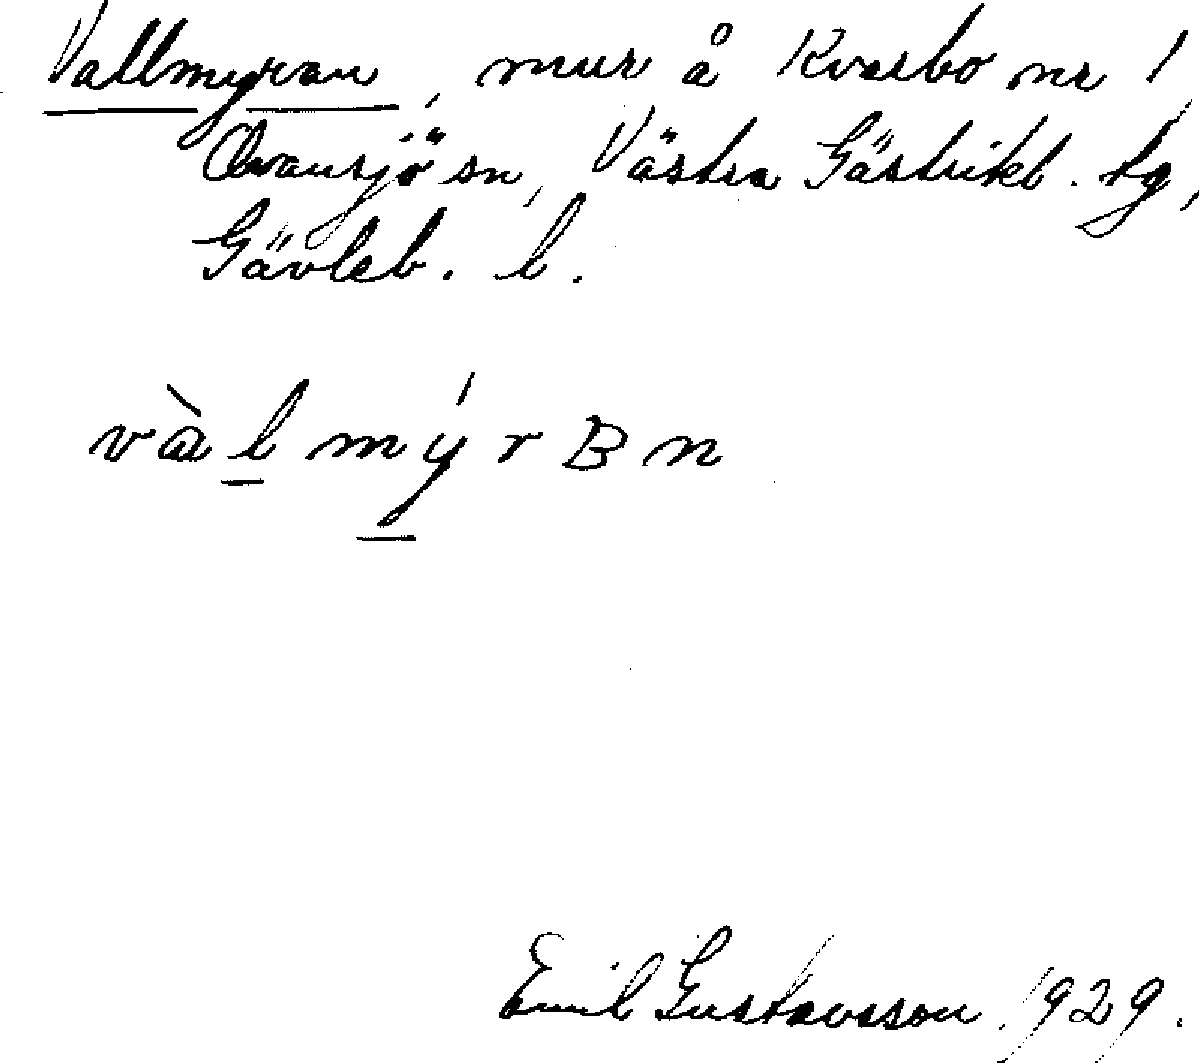 Vallmyran, mur å Kvarbo nr 1,
Ovansjö sn, Västra Gästrikl. tg,
Gävleb. l.
vàlmýrBn
Emil Gustavsson 1929.